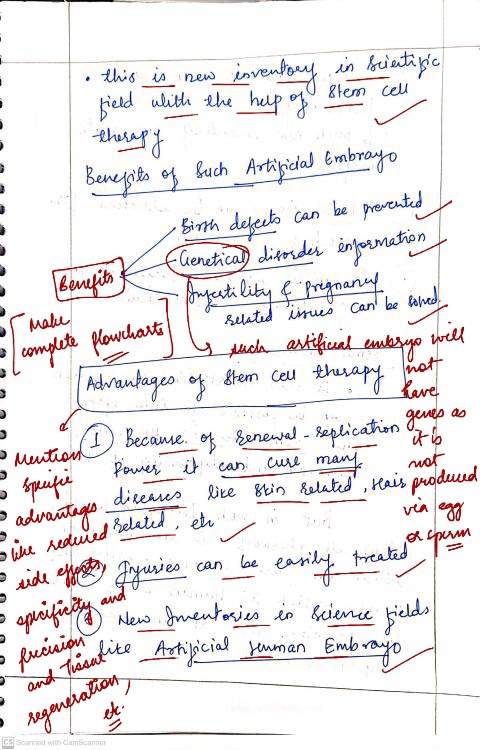 • this is new inventory in scientific
field with the help of stem cell
therapy
Benefits of Such Artificial Embrayo
Birth defects can be prevented
Genetical disorder information
Benefits
Infertility & pregnancy
related issues can be solved.
[Make
complete flowcharts]
such artificial embryo will
not
have
genes as
it is
not
produced
via egg
or sperm
Advantages of Stem Cell therapy
① Because of renewal-replication
power it can cure many
diseases like skin related, Hair
related, etc
Mention
specific
advantages
like reduced
side effects,
specificity and
precision
and Tissue
regeneration,
etc.
② Injuries can be easily treated
③ New Inventories in Science fields
like Artificial Human Embrayo
CS Scanned with CamScanner